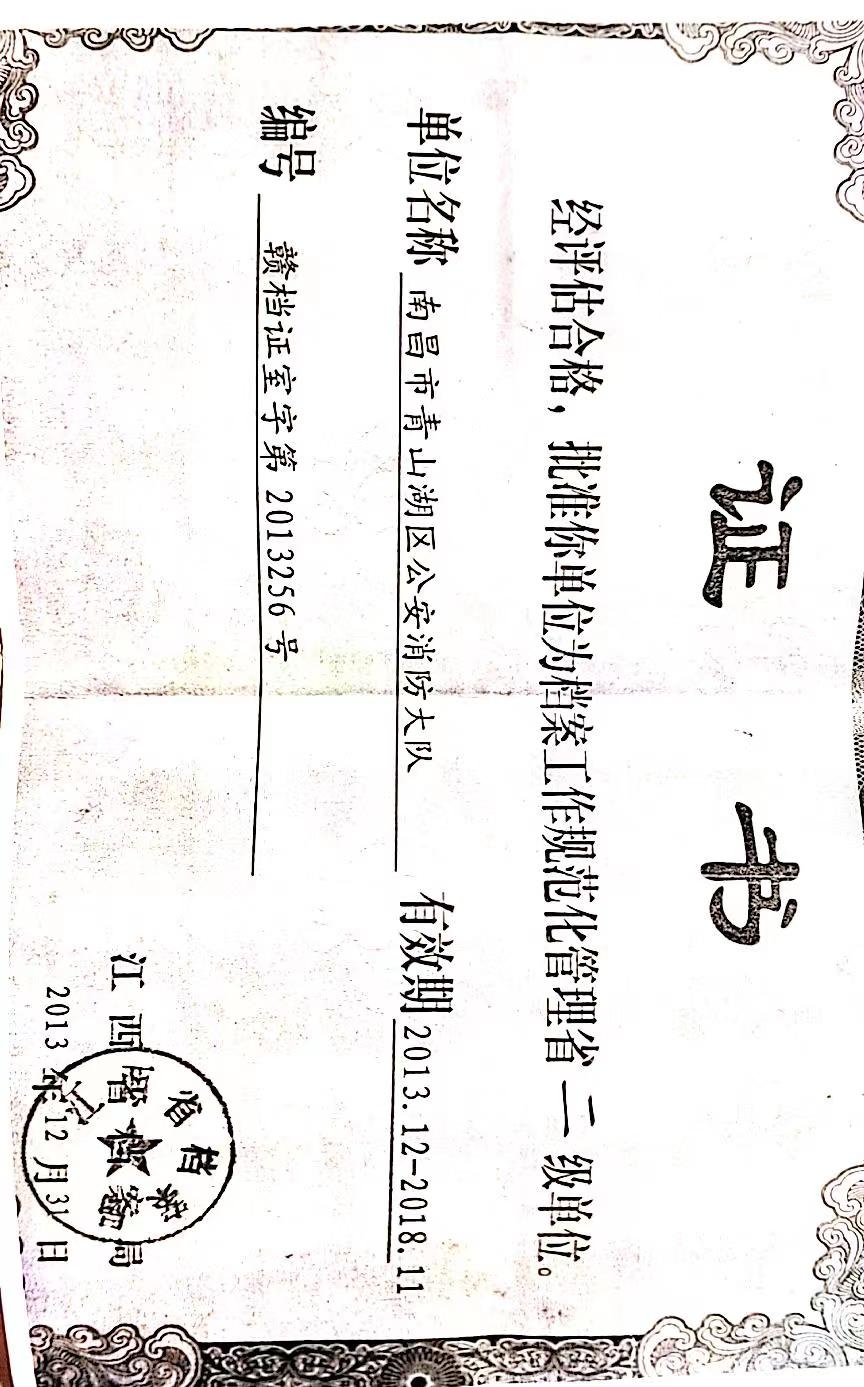 证 书
经评估合格，批准你单位为档案工作规范化管理省 二 级单位。
单位名称 南昌市青山湖区公安消防大队 有效期 2013.12-2018.11
编号 赣档证室字第 2013256 号
江西省档案局
2013 年 12 月 31 日